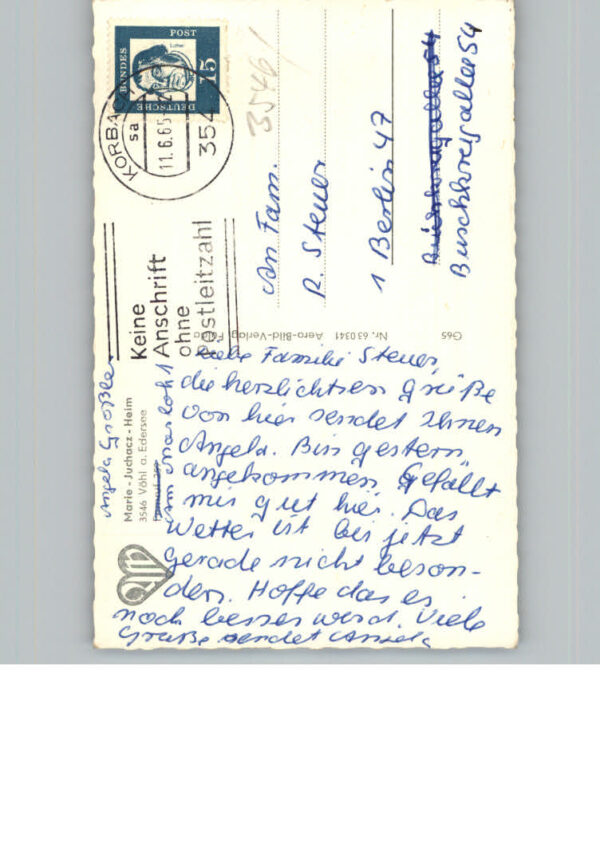 DEUTSCHE
BUNDES
POST
Luther
15
KORBACH
sa
11.6.65
354
3546/
Keine
Anschrift
ohne
Postleitzahl
An Fam.
R. Steuer
1 Berlin 47
Buschkrugallee 54
G65 Nr. 63 0341 Aero-Bild-Verlag Fulda
Angela Größler
Marie-Juchacz-Heim
3546 Vöhl a. Edersee
Liebe Familie Steuer,
die herzlichsten Grüße
von hier sendet Ihnen
Angela. Bin gestern
angekommen. Gefällt
mir gut hier. Das
Wetter ist bis jetzt
gerade nicht beson-
ders. Hoffe das es
noch besser wird. Viele
Grüße sendet Angela